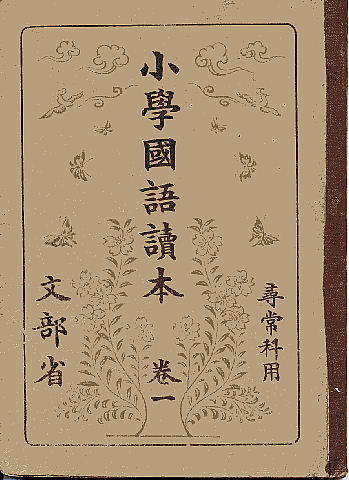 尋常科用
小學國語讀本 卷一
文部省